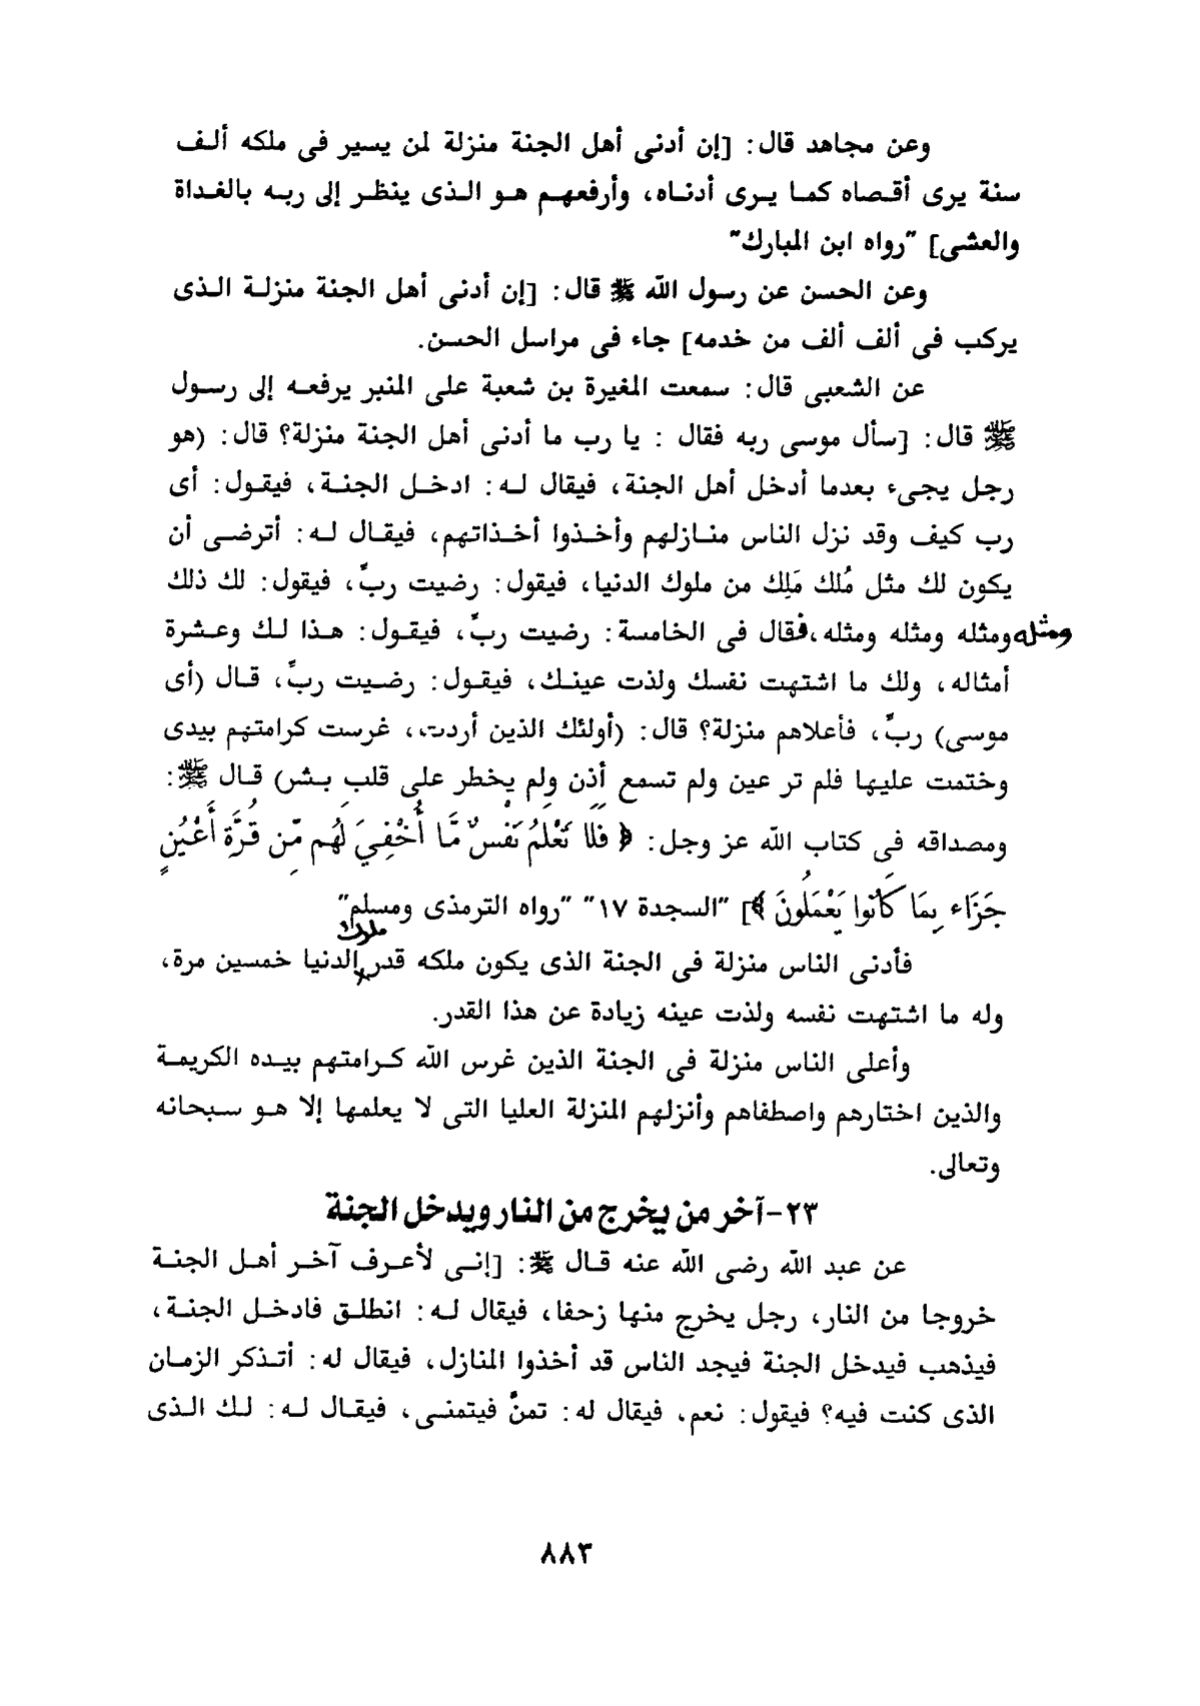 وعن مجاهد قال: [إن أدنى أهل الجنة منزلة لمن يسير فى ملكه ألف
سنة يرى أقصاه كما يرى أدناه، وأرفعهم هو الذى ينظر إلى ربه بالغداة
والعشى] "رواه ابن المبارك"
وعن الحسن عن رسول الله ﷺ قال: [إن أدنى أهل الجنة منزلة الذى
يركب فى ألف ألف من خدمه] جاء فى مراسل الحسن.
عن الشعبى قال: سمعت المغيرة بن شعبة على المنبر يرفعه إلى رسول
ﷺ قال: [سأل موسى ربه فقال : يا رب ما أدنى أهل الجنة منزلة؟ قال: (هو
رجل يجىء بعدما أدخل أهل الجنة، فيقال له: ادخل الجنة، فيقول: أى
رب كيف وقد نزل الناس منازلهم وأخذوا أخذاتهم، فيقال له: أترضى أن
يكون لك مثل مُلك مَلِك من ملوك الدنيا، فيقول: رضيت ربِّ، فيقول: لك ذلك
ومثله ومثله ومثله ومثله، فقال فى الخامسة: رضيت ربِّ، فيقول: هذا لك وعشرة
أمثاله، ولك ما اشتهت نفسك ولذت عينك، فيقول: رضيت ربِّ، قال (أى
موسى) ربِّ، فأعلاهم منزلة؟ قال: (أولئك الذين أردت، غرست كرامتهم بيدى
وختمت عليها فلم تر عين ولم تسمع أذن ولم يخطر على قلب بشر) قال ﷺ:
ومصداقه فى كتاب الله عز وجل: ﴿ فَلَا تَعْلَمُ نَفْسٌ مَّا أُخْفِيَ لَهُم مِّن قُرَّةِ أَعْيُنٍ
جَزَاءً بِمَا كَانُوا يَعْمَلُونَ ﴾] "السجدة ١٧" "رواه الترمذى ومسلم"
ملوك
فأدنى الناس منزلة فى الجنة الذى يكون ملكه قدر الدنيا خمسين مرة،
وله ما اشتهت نفسه ولذت عينه زيادة عن هذا القدر.
وأعلى الناس منزلة فى الجنة الذين غرس الله كرامتهم بيده الكريمة
والذين اختارهم واصطفاهم وأنزلهم المنزلة العليا التى لا يعلمها إلا هو سبحانه
وتعالى.
٢٣-آخر من يخرج من النار ويدخل الجنة
عن عبد الله رضى الله عنه قال ﷺ: [إنى لأعرف آخر أهل الجنة
خروجا من النار، رجل يخرج منها زحفا، فيقال له: انطلق فادخل الجنة،
فيذهب فيدخل الجنة فيجد الناس قد أخذوا المنازل، فيقال له: أتذكر الزمان
الذى كنت فيه؟ فيقول: نعم، فيقال له: تمنَّ فيتمنى، فيقال له: لك الذى
٨٨٣